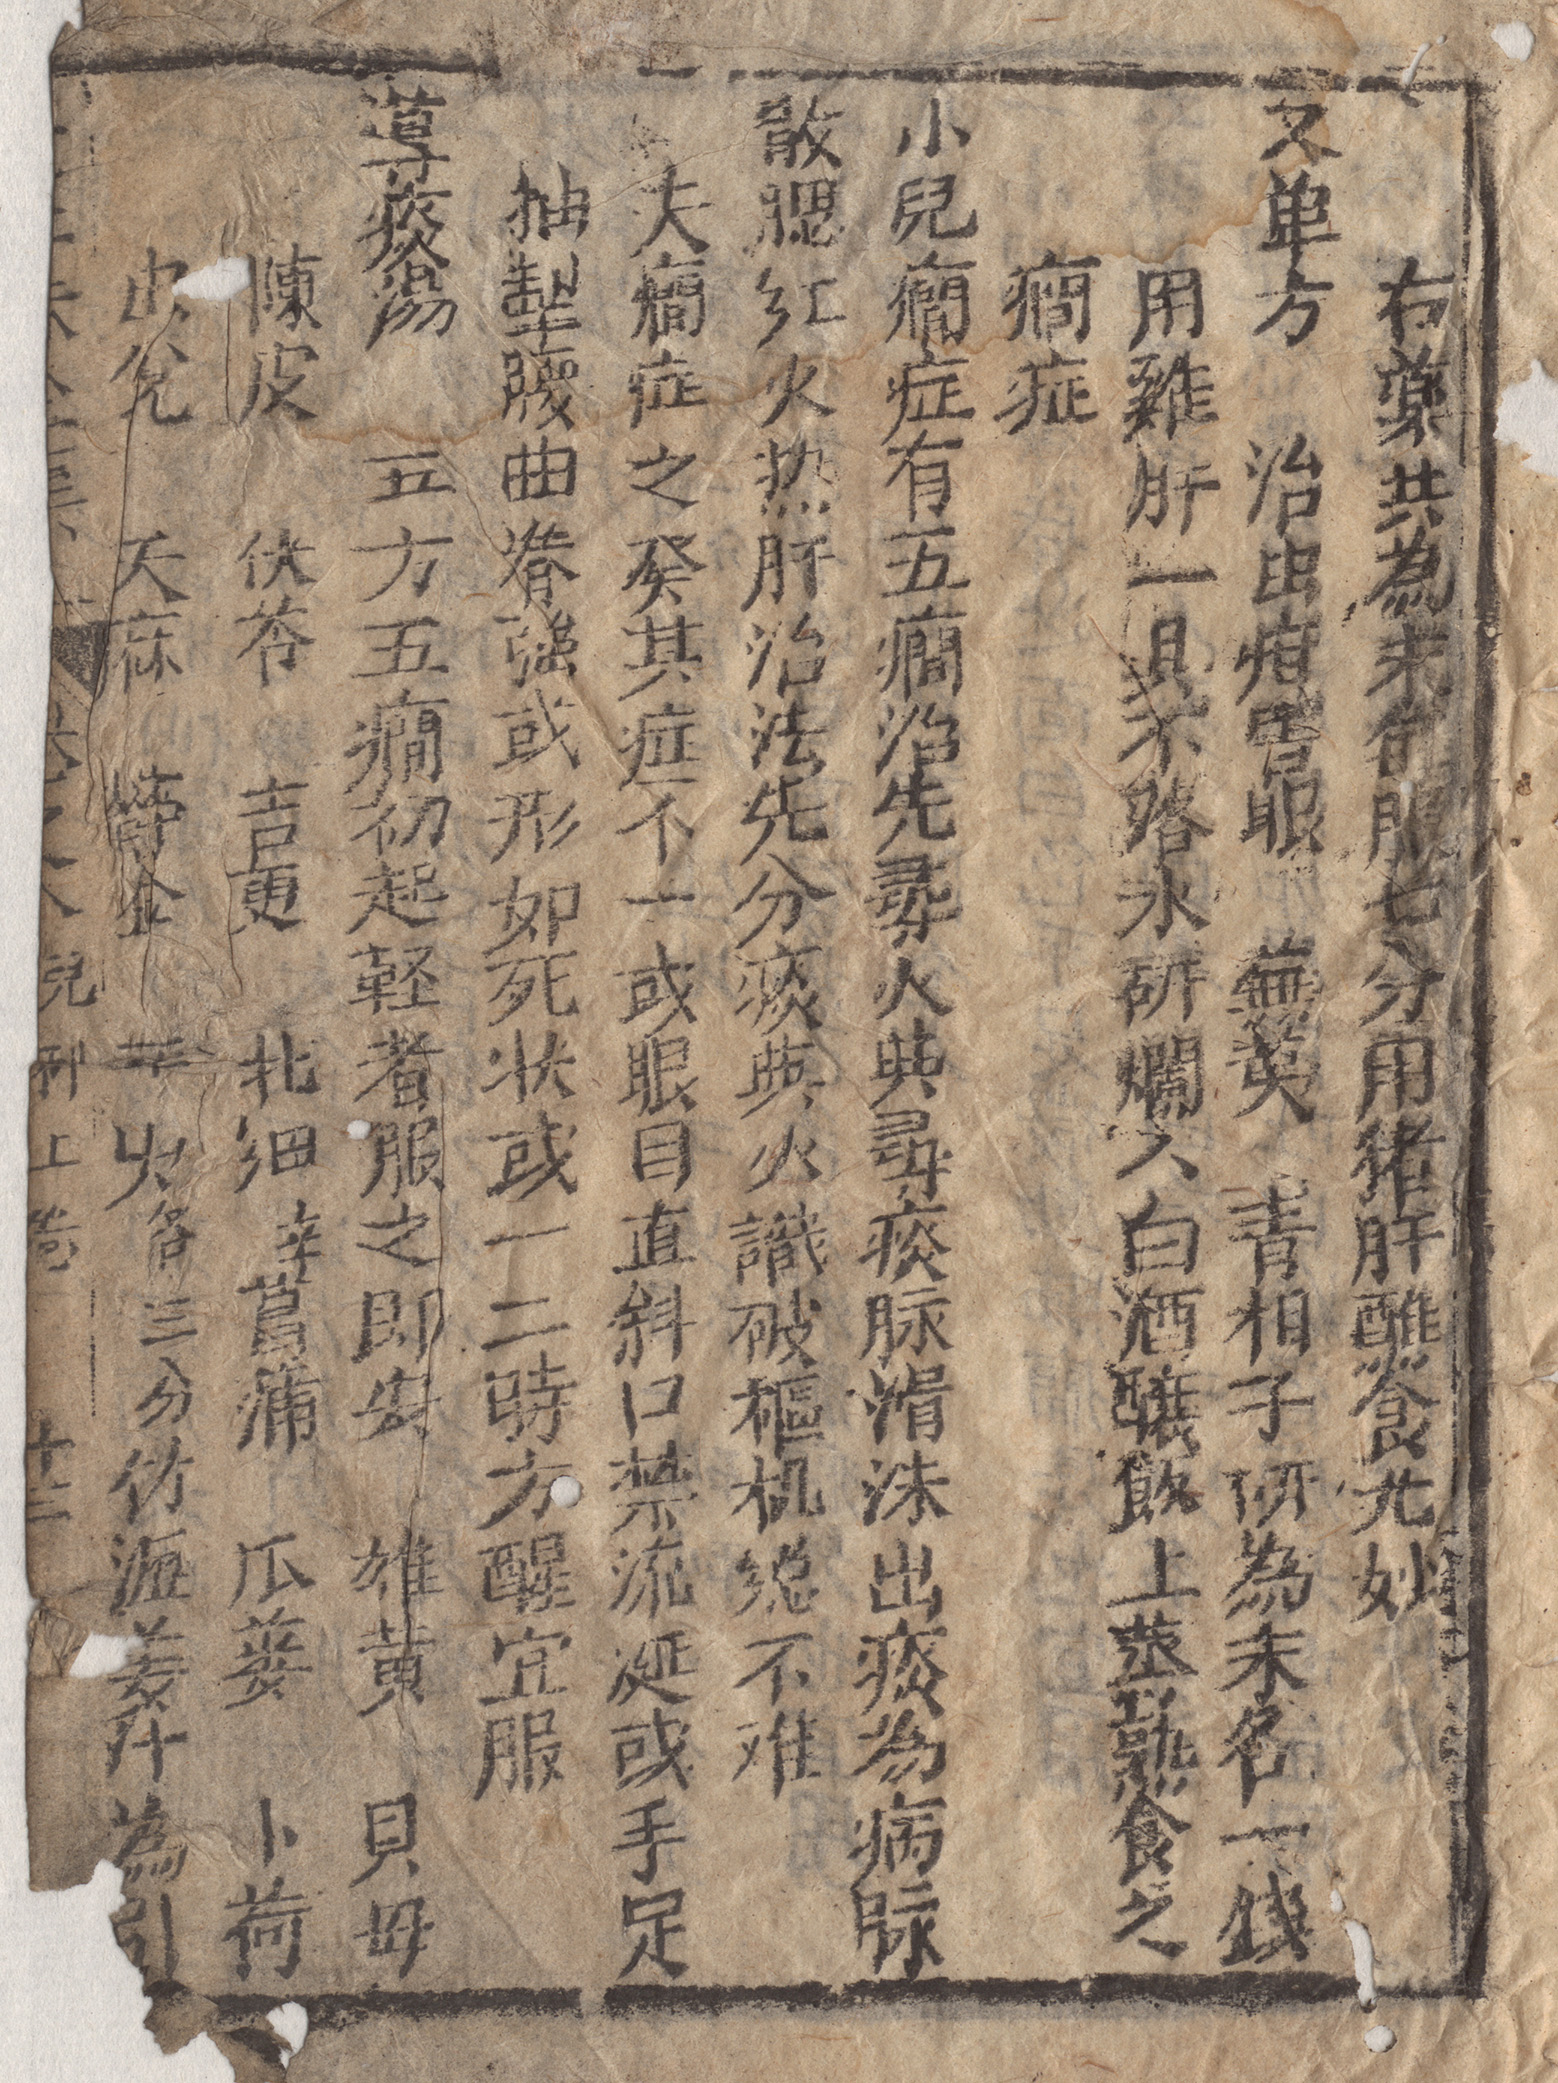 右藥共為末每服七分用猪肝醮食尤妙
又单方 治出疳瞖眼 蕪荑 青相子研為末名一錢
用雞肝一具不落水研爛入白酒釀飲上蒸熟食之
癇症
小兒癇症有五癇治先尋火與尋痰脉滑沫出痰為病脉
散腮紅火热肝治法先分痰與火識破樞机總不难
夫癇症之癸其症不一或眼目直斜口禁流涎或手足
抽掣腰曲脊强或形如死状或一二時方醒宜服
導痰湯 五方五癇初起軽者服之即安 雄黄 貝母
陳皮 伏苓 吉更 北細辛 菖蒲 瓜蒌 卜荷
天麻 欝金 各三分竹瀝姜汁為引
兒科上 十三